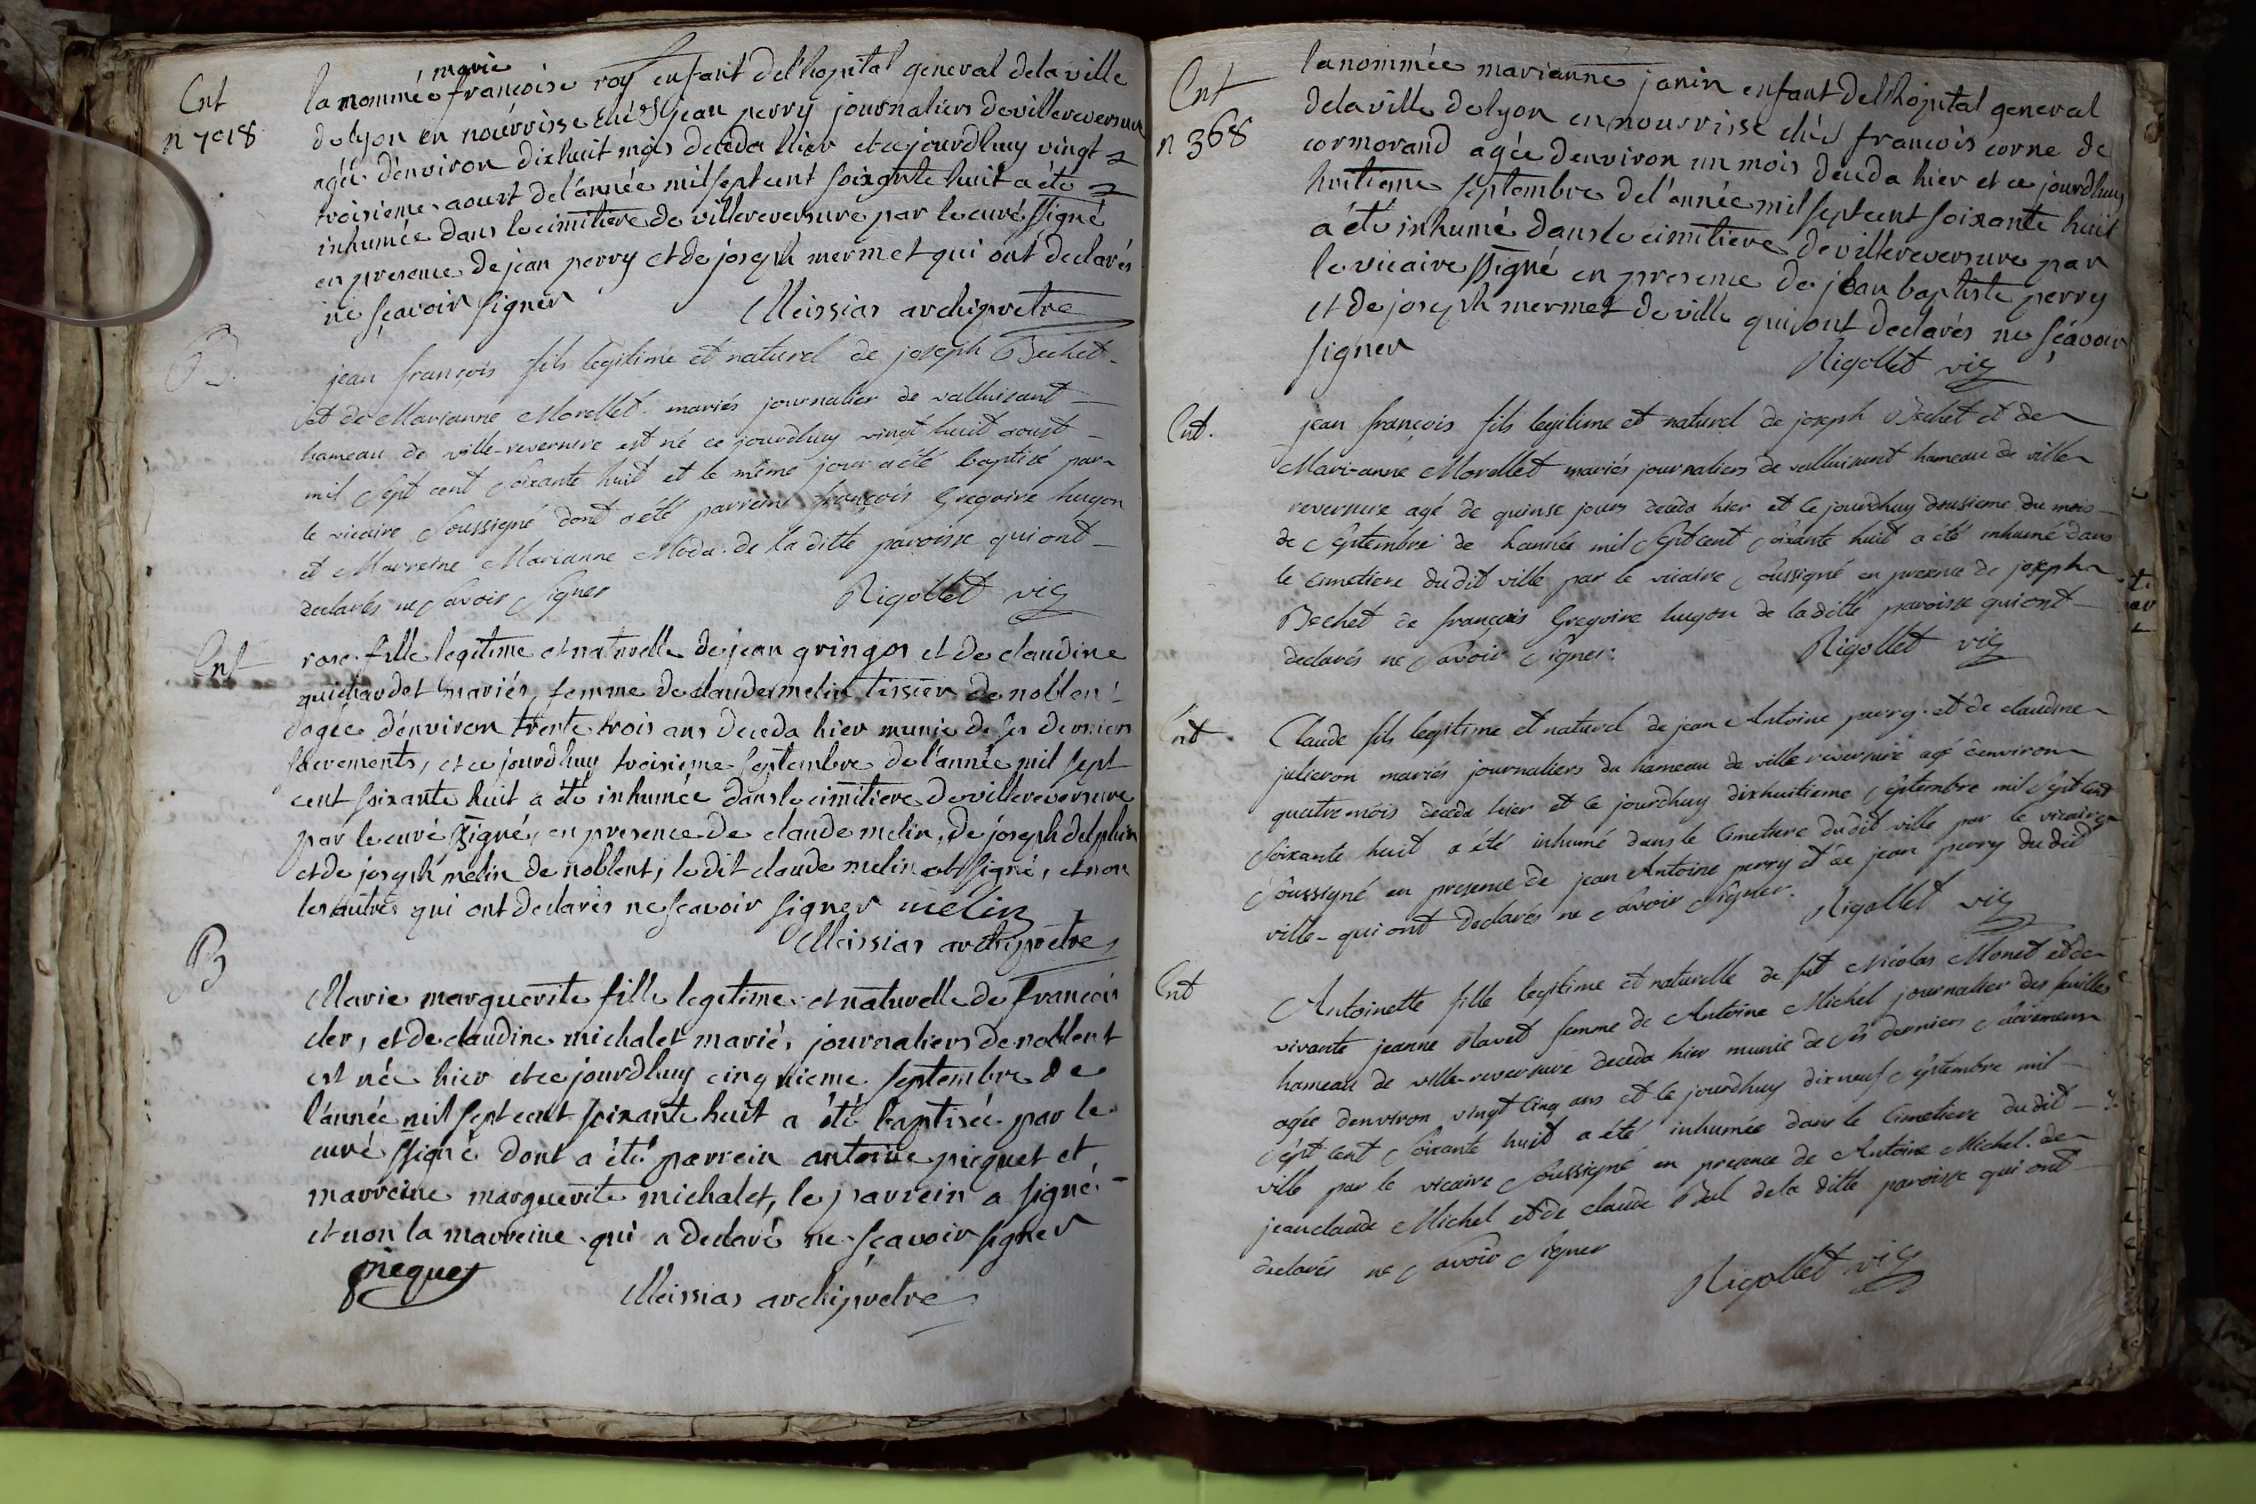 Ent
n 7018
marie
la nommée françoise roy enfant del'hopital general dela ville
de lyon en nourrisse chés jean perry journaliers de villereversure
agée d'environ dixhuit mois deceda hier et ce jourdhuy vingt
troisieme aoust de l'année mil sept cent soixante huit a été
inhumée dans le cimitiere de villereversure par le curé ssigné
en presence de jean perry et de joseph mermet qui ont declarés
ne sçavoir signer Meissias archipretre
B
jean françois fils legitime et naturel de joseph Bechet
et de Marianne Morellet mariés journalier de valluisant
hameau de ville-reversure est né ce jourdhuy vingt huit aoust
mil sept cent soixante huit et le même jour a été baptisé par
le vicaire soussigné dont a été parrein françois Gregoire hugon
et Marreine Marianne Moda de la ditte paroisse qui ont
declarés ne savoir signer Rigollet vic
Ent
rose fille legitime et naturelle de jean gringos et de claudine
guichardet mariés, femme de claude melin tissier de noblent
agée d'environ trente trois ans deceda hier munie de ses derniers
sacrements, et ce jourdhuy troisieme septembre de l'année mil sept
cent soixante huit a été inhumée dans le cimitiere de villereversure
par le curé ssigné, en presence de claude melin, de joseph delphin
et de joseph melin de noblent, le dit claude melin a signé, et non
les autres qui ont declarés ne scavoir signer melin
Meissias archipretre
B
Marie marguerite fille legitime et naturelle de francois
cler, et de claudine michalet mariés, journaliers de noblent
est née hier et ce jourdhuy cinquieme septembre de
l'année mil sept cent soixante huit a été baptisée par le
curé ssigné dont a été parrein antoine piquet et
marreine marguerite michalet, le parrein a signé
et non la marreine qui a declaré ne sçavoir signer
piequet
Meissias archipretre
Ent
n 368
la nommée marianne janin enfant del'hopital general
dela ville de lyon en nourrisse chés françois corne de
cormorand agée d'environ un mois deceda hier et ce jourdhuy
huitieme septembre de l'année mil sept cent soixante huit
a été inhumé dans le cimitiere de villereversure par
le vicaire ssigné en presence de jean baptiste perry
et de joseph mermet de ville qui ont declarés ne sçavoir
signer Rigollet vic
Ent.
jean françois fils legitime et naturel de joseph Bechet et de
Mari-anne Morellet mariés journaliers de valluisant hameau de ville
reversure agé de quinse jours deceda hier et le jourdhuy dousieme du mois
de septembre de l'année mil sept cent soixante huit a été inhumé dans
le cimetiere dudit ville par le vicaire soussigné en presence de joseph
Bechet de françois Gregoire hugon de la ditte paroisse qui ont
declarés ne savoir signer. Rigollet vic
Ent
Claude fils legitime et naturel de jean Antoine perry et de claudine
julieron mariés journaliers du hameau de ville reversure agé d'environ
quatre mois deceda hier et le jourdhuy dixhuitieme septembre mil sept cent
soixante huit a été inhumé dans le Cimetiere dudit ville par le vicaire
soussigné en presence de jean Antoine perry et de jean perry dudit
ville qui ont declarés ne savoir signer. Rigollet vic
Ent
Antoinette fille legitime et naturelle de fut Nicolas Monet et de
vivante jeanne Ravet femme de Antoine Michel journalier des feuilles
hameau de ville-reversure deceda hier munie de ses derniers sacremens
agée denviron vingt cinq ans et le jourdhuy dixneuf septembre mil
sept cent soixante huit a été inhumée dans le Cimetiere dudit
ville par le vicaire soussigné en presence de Antoine Michel de
jean claude Michel et de claude Bel de la ditte paroisse qui ont
declarés ne savoir signer
Rigollet vic